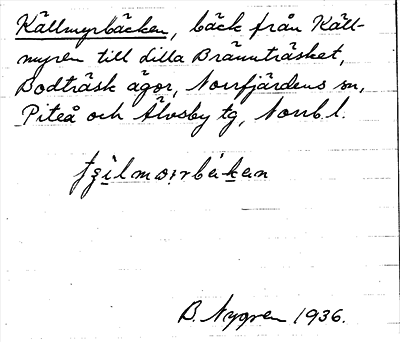 Källmyrbäcken, bäck från Käll-
myren till Lilla Brännträsket,
Bodträsk ägor, Norrfjärdens sn,
Piteå och Älvsby tg, Norrb. l.
B. Nygren 1936.